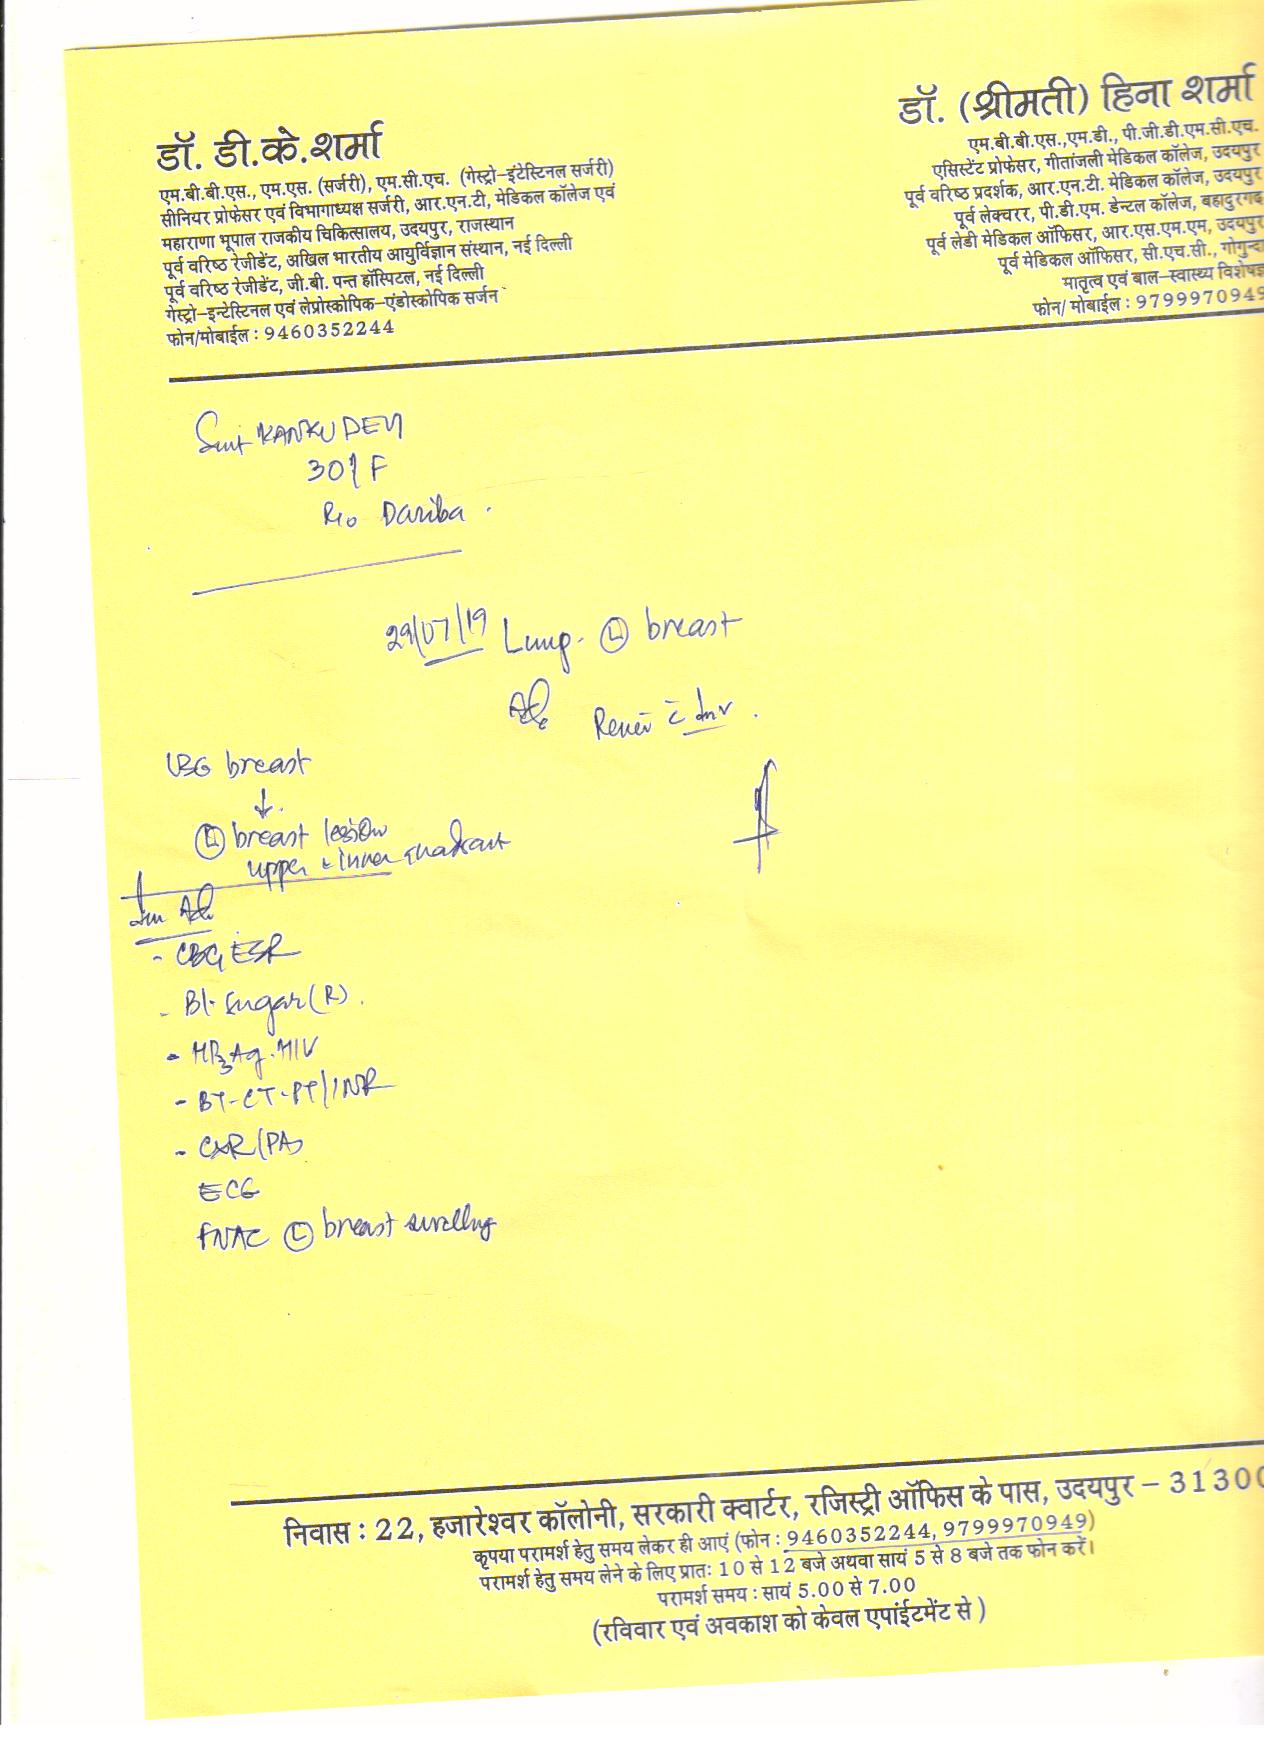 डॉ. डी.के.शर्मा
एम.बी.बी.एस., एम.एस. (सर्जरी), एम.सी.एच. (गेस्ट्रो-इंटेस्टिनल सर्जरी)
सीनियर प्रोफेसर एवं विभागाध्यक्ष सर्जरी, आर.एन.टी, मेडिकल कॉलेज एवं
महाराणा भूपाल राजकीय चिकित्सालय, उदयपुर, राजस्थान
पूर्व वरिष्ठ रेजीडेंट, अखिल भारतीय आयुर्विज्ञान संस्थान, नई दिल्ली
पूर्व वरिष्ठ रेजीडेंट, जी.बी. पन्त हॉस्पिटल, नई दिल्ली
गेस्ट्रो-इन्टेस्टिनल एवं लेप्रोस्कोपिक-एंडोस्कोपिक सर्जन
फोन/मोबाईल : 9460352244
डॉ. (श्रीमती) हिना शर्मा
एम.बी.बी.एस.,एम.डी., पी.जी.डी.एम.सी.एच.
एसिस्टेंट प्रोफेसर, गीतांजली मेडिकल कॉलेज, उदयपुर
पूर्व वरिष्ठ प्रदर्शक, आर.एन.टी. मेडिकल कॉलेज, उदयपुर
पूर्व लेक्चरर, पी.डी.एम. डेन्टल कॉलेज, बहादुरगढ़
पूर्व लेडी मेडिकल ऑफिसर, आर.एस.एम.एम, उदयपुर
पूर्व मेडिकल ऑफिसर, सी.एच.सी., गोगुन्दा
मातृत्व एवं बाल-स्वास्थ्य विशेषज्ञ
फोन/ मोबाईल : 9799970949
Smt KANKU DEVI
30y F
R/o Dariba
29/07/19 Lump. (L) breast
Adv Review c̄ Inv.
USG breast
↓
(L) breast lesion
upper & inner quadrant
Inv Adv
- CBC, ESR
- Bl. Sugar (R).
- HBsAg. HIV
- BT-CT-PT/INR
- CXR (PA)
ECG
FNAC (L) breast swelling
निवास : 22, हजारेश्वर कॉलोनी, सरकारी क्वार्टर, रजिस्ट्री ऑफिस के पास, उदयपुर - 31300
कृपया परामर्श हेतु समय लेकर ही आएं (फोन : 9460352244, 9799970949)
परामर्श हेतु समय लेने के लिए प्रातः 10 से 12 बजे अथवा सायं 5 से 8 बजे तक फोन करें।
परामर्श समय : सायं 5.00 से 7.00
(रविवार एवं अवकाश को केवल एपांईटमेंट से )